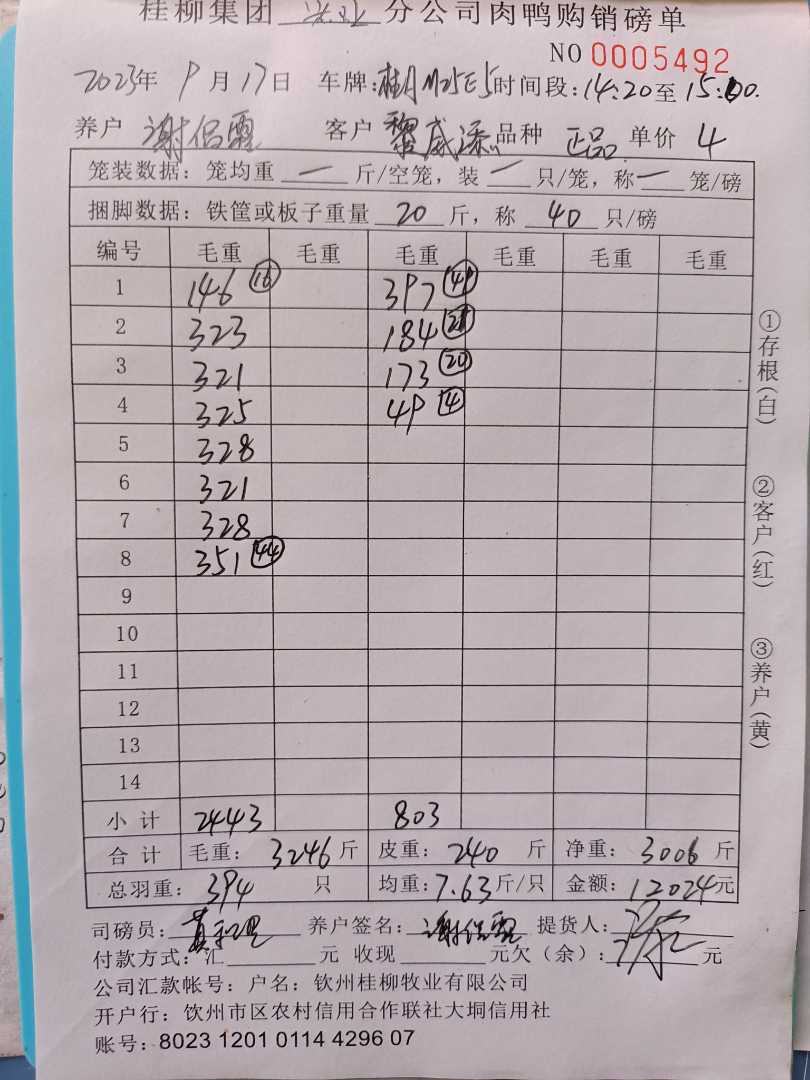 桂柳集团 分公司肉鸭购销磅单
NO 0005492
2023年 9月17日 车牌:桂 M25E5 时间段:14:20至15:00.
养户 谢侣霞 客户 黎威添 品种 正品 单价 4
笼装数据: 笼均重 一 斤/空笼, 装 一 只/笼, 称 一 笼/磅
捆脚数据: 铁筐或板子重量 20 斤, 称 40 只/磅
编号 毛重 毛重 毛重 毛重 毛重 毛重
1 146 (16) 397
2 323 184
3 321 173 (20)
4 325 49 (4)
5 328
6 321
7 328
8 351 (44)
9
10
11
12
13
14
小 计 2443 803
合 计 毛重: 3246 斤 皮重: 240 斤 净重: 3006 斤
总羽重: 394 只 均重: 7.63 斤/只 金额: 12024元
司磅员: 养户签名: 谢侣霞 提货人:
付款方式: 汇 元 收现 元欠（余）: 元
公司汇款帐号: 户名: 钦州桂柳牧业有限公司
开户行: 钦州市区农村信用合作联社大垌信用社
账号: 8023 1201 0114 4296 07
①存根(白)
②客户(红)
③养户(黄)